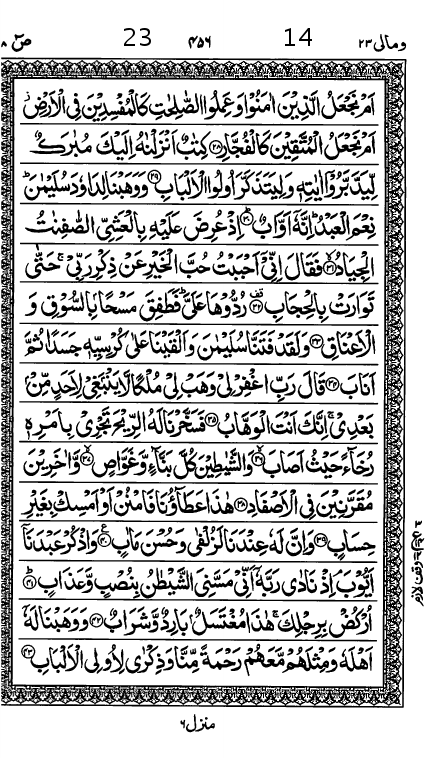 ومالی ٢٣ 14 ۴۵۶ 23 صٓ ٣٨
اَمْ نَجْعَلُ الَّذِيْنَ اٰمَنُوْا وَعَمِلُوا الصّٰلِحٰتِ كَالْمُفْسِدِيْنَ فِى الْاَرْضِ
اَمْ نَجْعَلُ الْمُتَّقِيْنَ كَالْفُجَّارِ ﴿٢٨﴾ كِتٰبٌ اَنْزَلْنٰهُ اِلَيْكَ مُبٰرَكٌ
لِّيَدَّبَّرُوْۤا اٰيٰتِهٖ وَلِيَتَذَكَّرَ اُولُوا الْاَلْبَابِ ﴿٢٩﴾ وَوَهَبْنَا لِدَاوٗدَ سُلَيْمٰنَ ؕ
نِعْمَ الْعَبْدُ ؕ اِنَّهٗۤ اَوَّابٌ ﴿٣٠﴾ اِذْ عُرِضَ عَلَيْهِ بِالْعَشِىِّ الصّٰفِنٰتُ
الْجِيَادُ ﴿٣١﴾ فَقَالَ اِنِّىْۤ اَحْبَبْتُ حُبَّ الْخَيْرِ عَنْ ذِكْرِ رَبِّىْ ۚ حَتّٰى
تَوَارَتْ بِالْحِجَابِ ﴿٣٢﴾ رُدُّوْهَا عَلَىَّ ؕ فَطَفِقَ مَسْحًۢا بِالسُّوْقِ وَ
الْاَعْنَاقِ ﴿٣٣﴾ وَلَقَدْ فَتَنَّا سُلَيْمٰنَ وَاَلْقَيْنَا عَلٰى كُرْسِيِّهٖ جَسَدًا ثُمَّ
اَنَابَ ﴿٣٤﴾ قَالَ رَبِّ اغْفِرْ لِىْ وَهَبْ لِىْ مُلْكًا لَّا يَنْۢبَغِىْ لِاَحَدٍ مِّنْۢ
بَعْدِىْ ۚ اِنَّكَ اَنْتَ الْوَهَّابُ ﴿٣٥﴾ فَسَخَّرْنَا لَهُ الرِّيْحَ تَجْرِىْ بِاَمْرِهٖ
رُخَآءً حَيْثُ اَصَابَ ﴿٣٦﴾ وَالشَّيٰطِيْنَ كُلَّ بَنَّآءٍ وَّغَوَّاصٍ ﴿٣٧﴾ وَّاٰخَرِيْنَ
مُقَرَّنِيْنَ فِى الْاَصْفَادِ ﴿٣٨﴾ هٰذَا عَطَآؤُنَا فَامْنُنْ اَوْ اَمْسِكْ بِغَيْرِ
حِسَابٍ ﴿٣٩﴾ وَاِنَّ لَهٗ عِنْدَنَا لَزُلْفٰى وَحُسْنَ مَاٰبٍ ﴿٤٠﴾ وَاذْكُرْ عَبْدَنَاۤ
اَيُّوْبَ ۘ اِذْ نَادٰى رَبَّهٗۤ اَنِّىْ مَسَّنِىَ الشَّيْطٰنُ بِنُصْبٍ وَّعَذَابٍ ﴿٤١﴾
اُرْكُضْ بِرِجْلِكَ ۚ هٰذَا مُغْتَسَلٌۢ بَارِدٌ وَّشَرَابٌ ﴿٤٢﴾ وَوَهَبْنَا لَهٗۤ
اَهْلَهٗ وَمِثْلَهُمْ مَّعَهُمْ رَحْمَةً مِّنَّا وَذِكْرٰى لِاُولِى الْاَلْبَابِ ﴿٤٣﴾
منزل ٦